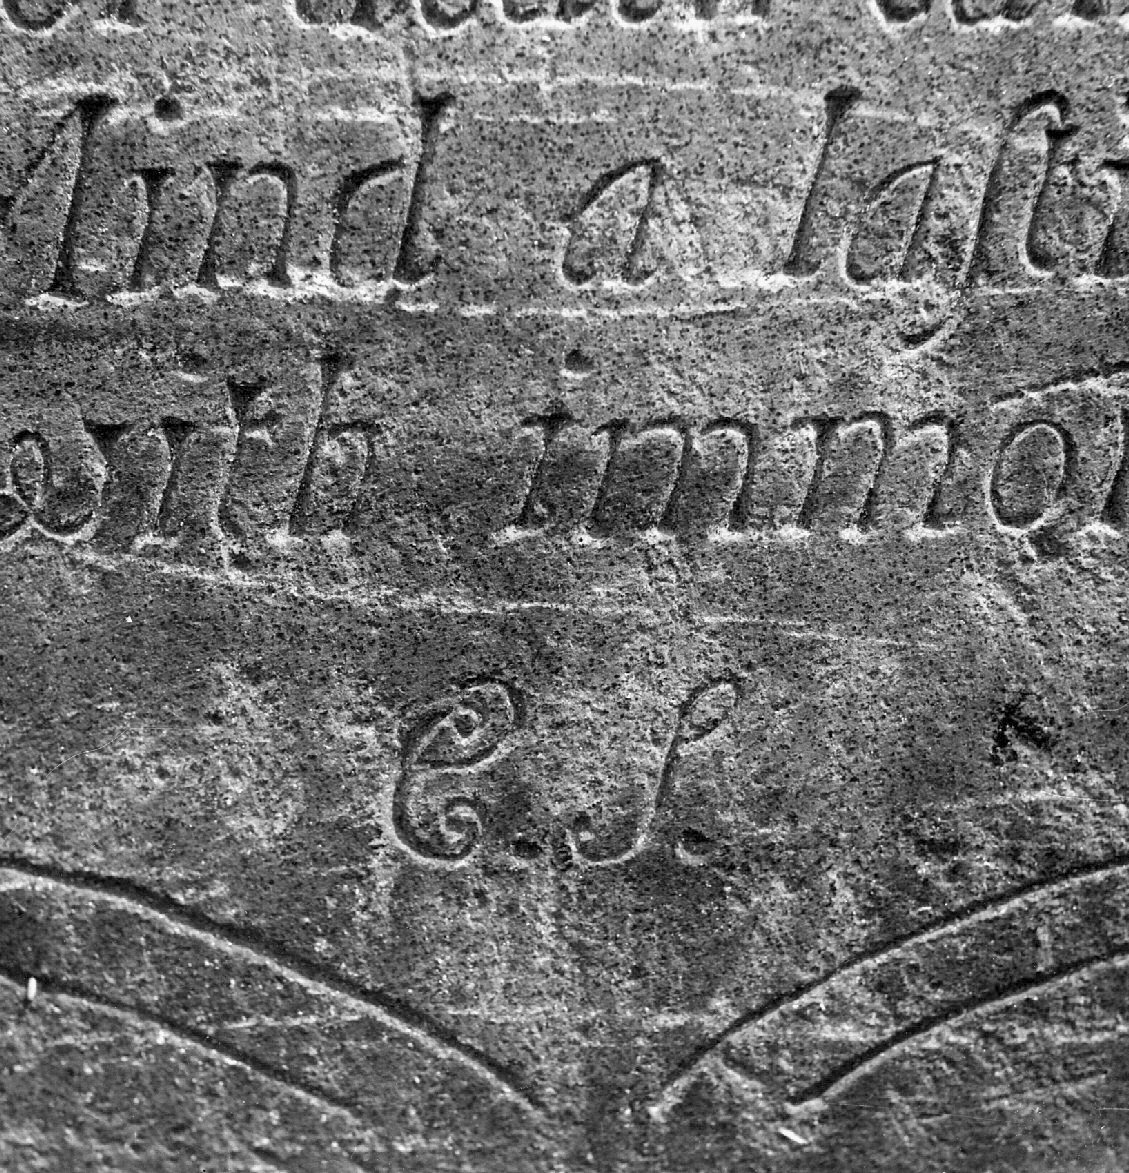 Mind a laſt
with immor
C. S.